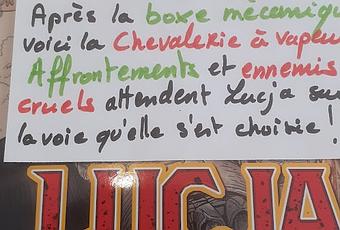 Après la boxe mécaniqu
voici la Chevalerie à vapeur
Affrontements et ennemis
cruels attendent Lucja sur
la voie qu'elle s'est choisie !
LUCJA